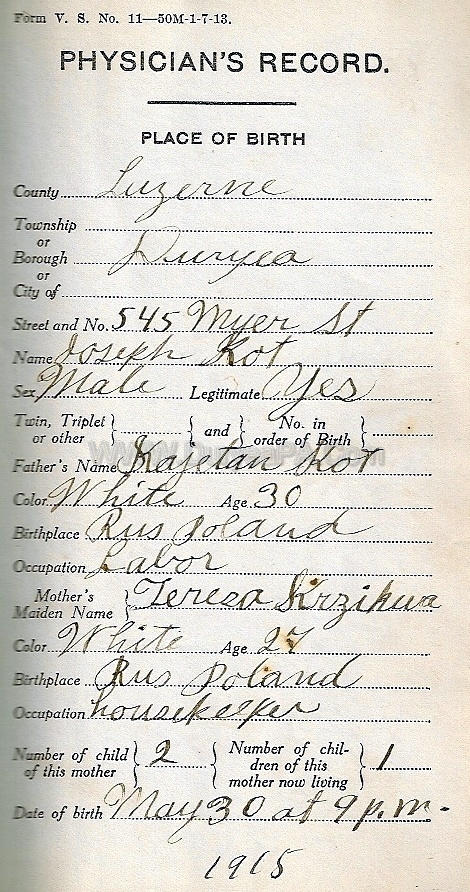 Form V. S. No. 11—50M-1-7-13.
PHYSICIAN'S RECORD.
PLACE OF BIRTH
County Luzerne
Township
or
Borough Duryea
or
City of
Street and No. 545 Myer St
Name Joseph Kot
Sex Male Legitimate Yes
Twin, Triplet or other } { and } No. in order of Birth }
Father's Name Kajetan Kot
Color White Age 30
Birthplace Rus Poland
Occupation Labor
Mother's Maiden Name } Teresa Skrzikwa
Color White Age 27
Birthplace Rus Poland
Occupation housekeeper
Number of child of this mother } 2 { Number of chil-
dren of this
mother now living } 1
Date of birth May 30 at 9 p.m.
1915